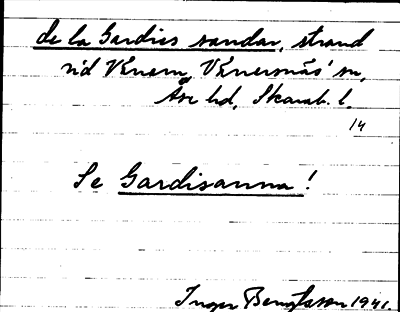 de la Gardies sandar, strand
vid Vänern, Vänersnäs' sn,
Åse hd, Skarab. l.
14
Se Gardisanna!
Inger Bengtsson 1941.